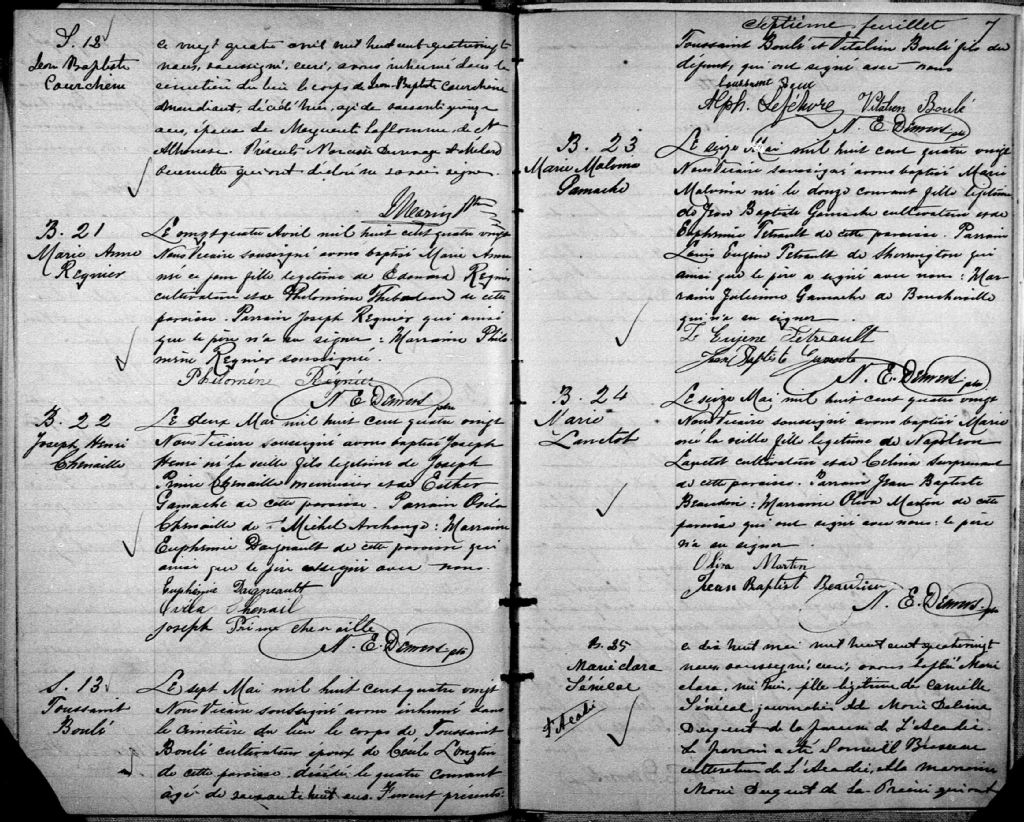 S. 12
Jean Baptiste
Courchêne
ce vingt quatre avril mil huit cent quatrevingt
nous, soussigné, curé, avons inhumé dans le
cimetière du lieu le corps de Jean Baptiste Courchêne
mendiant, décédé hier, agé de soixante quinze
ans, époux de Marguerite Laflamme, de St
Alphonse. Présents Narcisse
qui ont déclaré ne savoir signer.
B. 21
Marie Anne
Regnier
Le vingt quatre Avril mil huit cent quatre vingt
Nous Vicaire soussigné avons baptisé Marie Anne
née ce jour fille legitime de Edmond Regnier
cultivateur et de Philomène Thibodeau de cette
paroisse. Parrain Joseph Regnier qui ainsi
que le père n'a su signer : Marraine Philo-
mène Regnier soussignée.
Philomène Régnier
N. E. Demers ptre
B. 22
Joseph Henri
Chenaille
Le deux Mai mil huit cent quatre vingt
Nous Vicaire soussigné avons baptisé Joseph
Henri né la veille fils legitime de Joseph
Prime Chenaille menuisier et de Esther
Gamache de cette paroisse. Parrain Ovila
Chenaille de St Michel Archange : Marraine
Euphémie Daigneault de cette paroisse qui
ainsi que le père ont signé avec nous.
Euphémie Daigneault
Ovila Chenail
Joseph Prime chenaille
N. E. Demers ptre
S. 13
Toussaint
Boulé
Le sept Mai mil huit cent quatre vingt
Nous Vicaire soussigné avons inhumé dans
le cimetière du lieu le corps de Toussaint
Boulé cultivateur époux de Cécile Longtin
de cette paroisse décédé le quatre courant
âgé de soixante huit ans. Furent présents :
Septième feuillet 7
Toussaint Boulé et Vitalien Boulé fils du
défunt, qui ont signé avec nous
Toussaint Boulé
Alph. Lefebvre Vitalien Boulé
N. E. Demers ptre
B. 23
Marie Malvina
Gamache
Le seize Mai mil huit cent quatre vingt
Nous Vicaire soussigné avons baptisé Marie
Malvina née le douze courant fille legitime
de Jean Baptiste Gamache cultivateur et de
Euphémie Tetrault de cette paroisse. Parrain
Louis Eugène Tetrault de Sherrington qui
ainsi que le père a signé avec nous : Mar-
raine Julienne Gamache de Boucherville
qui n'a su signer
L. Eugène Tetreault
Jean Baptiste Gamache
N. E. Demers ptre
B. 24
Marie
Lanctot
Le seize Mai mil huit cent quatre vingt
Nous Vicaire soussigné avons baptisé Marie
née la veille fille legitime de Napoléon
Lanctot cultivateur et de Celina Surprenant
de cette paroisse. Parrain Jean Baptiste
Beaudin : Marraine Oliva Martin de cette
paroisse qui ont signé avec nous : le père
n'a su signer
Oliva Martin
Jean Baptist Beaudin
N. E. Demers ptre
B. 25
Marie clara
Sénécal
L'Acadie
ce dix huit mai mil huit cent quatrevingt
nous, soussigné, curé, avons baptisé Marie
clara, née hier, fille légitime de Camille
Sénécal journalier et de Marie Delima
Duguet de la paroisse de L'Acadie.
Le parrain a été Bisseau
cultivateur de L'Acadie, et la marraine
Marie Duguet de La Prairie qui ont